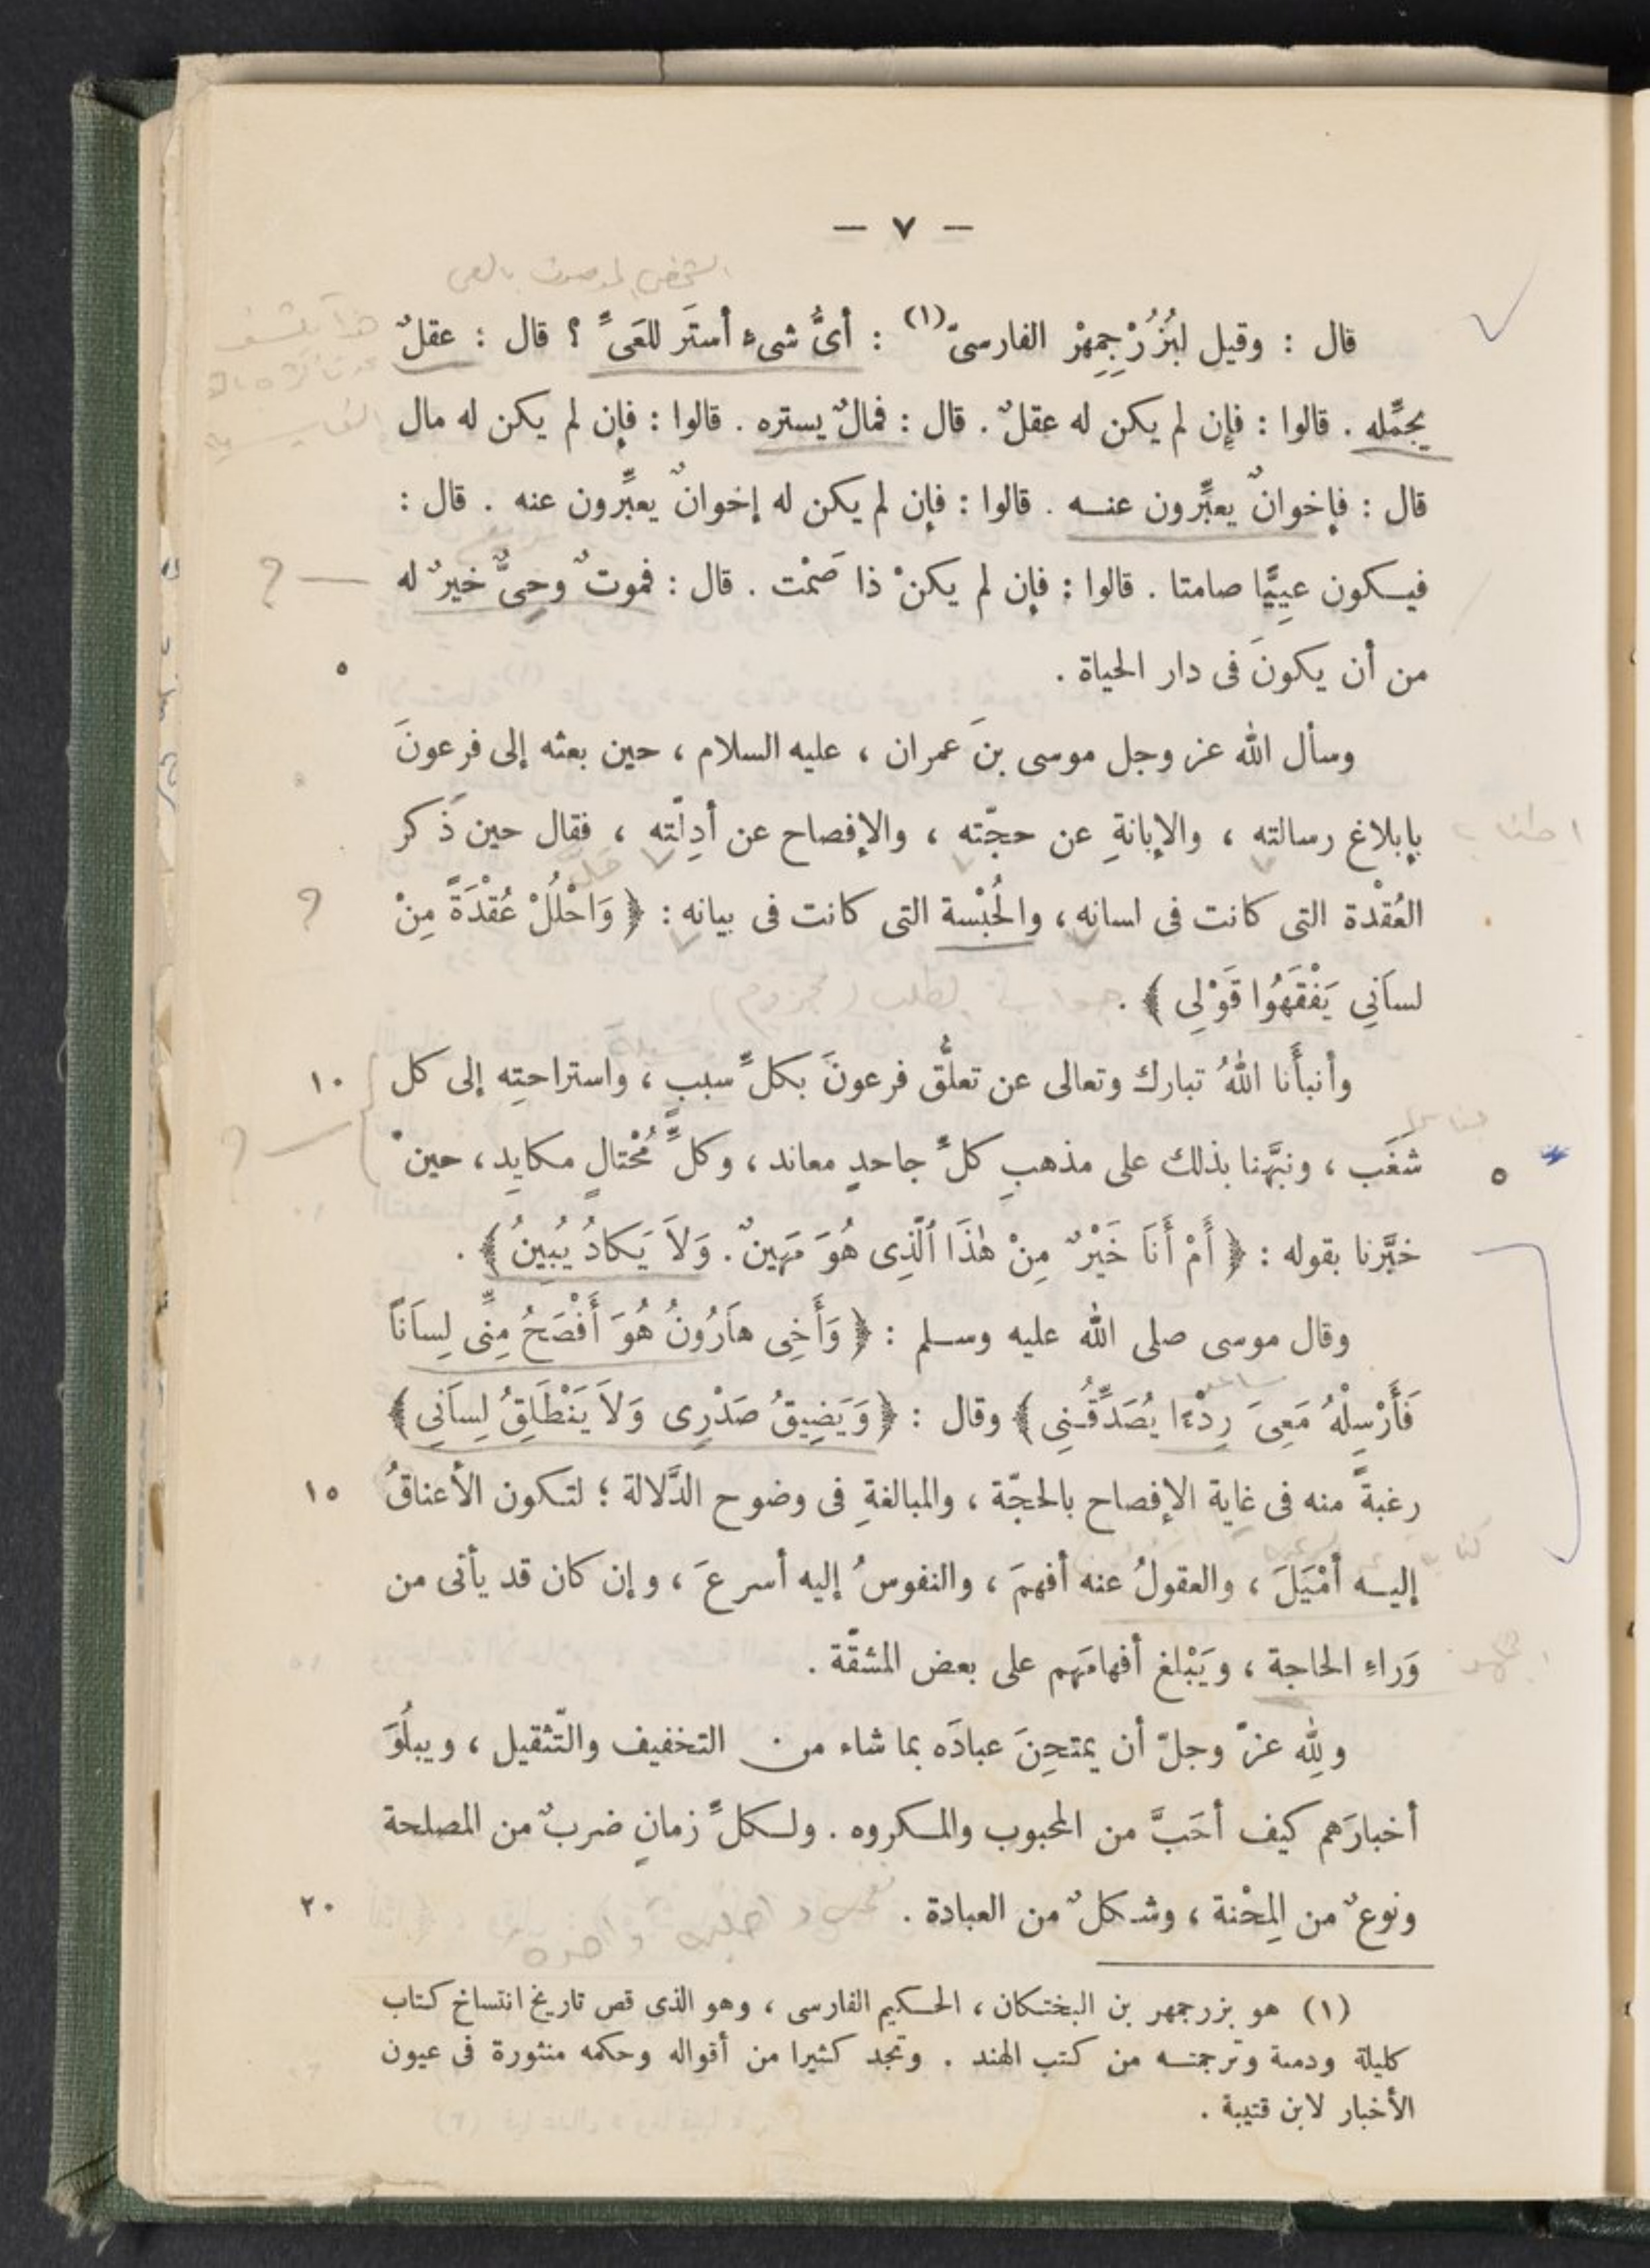 — ٧ —
قال : وقيل لبُزُرْجِمِهْرْ الفارسىّ(١) : أىُّ شىء أستَر للعَىِّ ؟ قال : عقلٌ
يجمِّله . قالوا : فإن لم يكن له عقلٌ . قال : فمالٌ يستره . قالوا : فإن لم يكن له مال
قال : فإخوانٌ يعبِّرون عنـه . قالوا : فإن لم يكن له إخوانٌ يعبِّرون عنه . قال :
فيكون عيِيًّا صامتا . قالوا : فإن لم يكنْ ذا صَمْت . قال : فموتٌ وحِىٌّ خيرٌ له
من أن يكونَ فى دار الحياة . ٥
وسأل الله عز وجل موسى بنَ عمران ، عليه السلام ، حين بعثه إلى فرعونَ
بإبلاغ رسالته ، والإبانةِ عن حجّته ، والإفصاح عن أدِلّته ، فقال حين ذَكر
العُقْدة التى كانت فى لسانه ، والحُبْسة التى كانت فى بيانه : ﴿ وَاحْلُلْ عُقْدَةً مِنْ
لساَنِي يَفْقَهُوا قَوْلِي ﴾ .
وأنبأَنا اللهُ تبارك وتعالى عن تعلُّق فرعونَ بكلِّ سببٍ ، واستراحتِه إلى كل ١٠
شَغَب ، ونبَّهنا بذلك على مذهبِ كلِّ جاحدٍ معاند ، وكلِّ مُحْتالٍ مكايِد ، حينْ ٥
خبَّرنا بقوله : ﴿ أَمْ أَنَا خَيْرٌ مِنْ هٰذَا ٱلَّذِى هُوَ مَهِينٌ . وَلاَ يَكادُ يُبِينُ ﴾ .
وقال موسى صلى الله عليه وسلم : ﴿ وَأَخِى هاَرُونُ هُوَ أَفْصَحُ مِنِّى لِسَاناً
فَأَرْسِلْهُ مَعِىَ رِدْءًا يُصَدِّقُنِى ﴾ وقال : ﴿ وَيَضِيقُ صَدْرِى وَلاَ يَنْطَلِقُ لِسَانِي ﴾
رغبةً منه فى غاية الإفصاح بالحجّة ، والمبالغةِ فى وضوح الدَّلالة ؛ لتكون الأعناقُ ١٥
إليـه أمْيَلَ ، والعقولُ عنه أفهمَ ، والنفوسُ إليه أسرعَ ، وإن كان قد يأتى من
وَراءِ الحاجة ، ويَبْلغ أفهامَهم على بعض المشقّة .
وللهِ عزّ وجلّ أن يمتحِنَ عبادَه بما شاء من التخفيف والتّثقيل ، ويبلُوَ
أخبارَهم كيف أحَبَّ من المحبوب والمكروه . ولكلِّ زمانٍ ضربٌ من المصلحة
ونوعٌ من المِحْنة ، وشكلٌ من العبادة . ٢٠
(١) هو بزرجمهر بن البختكان ، الحكيم الفارسى ، وهو الذى قص تاريخ انتساخ كتاب
كليلة ودمنة وترجمتـه من كتب الهند . وتجد كثيرا من أقواله وحكمه منثورة فى عيون
الأخبار لابن قتيبة .